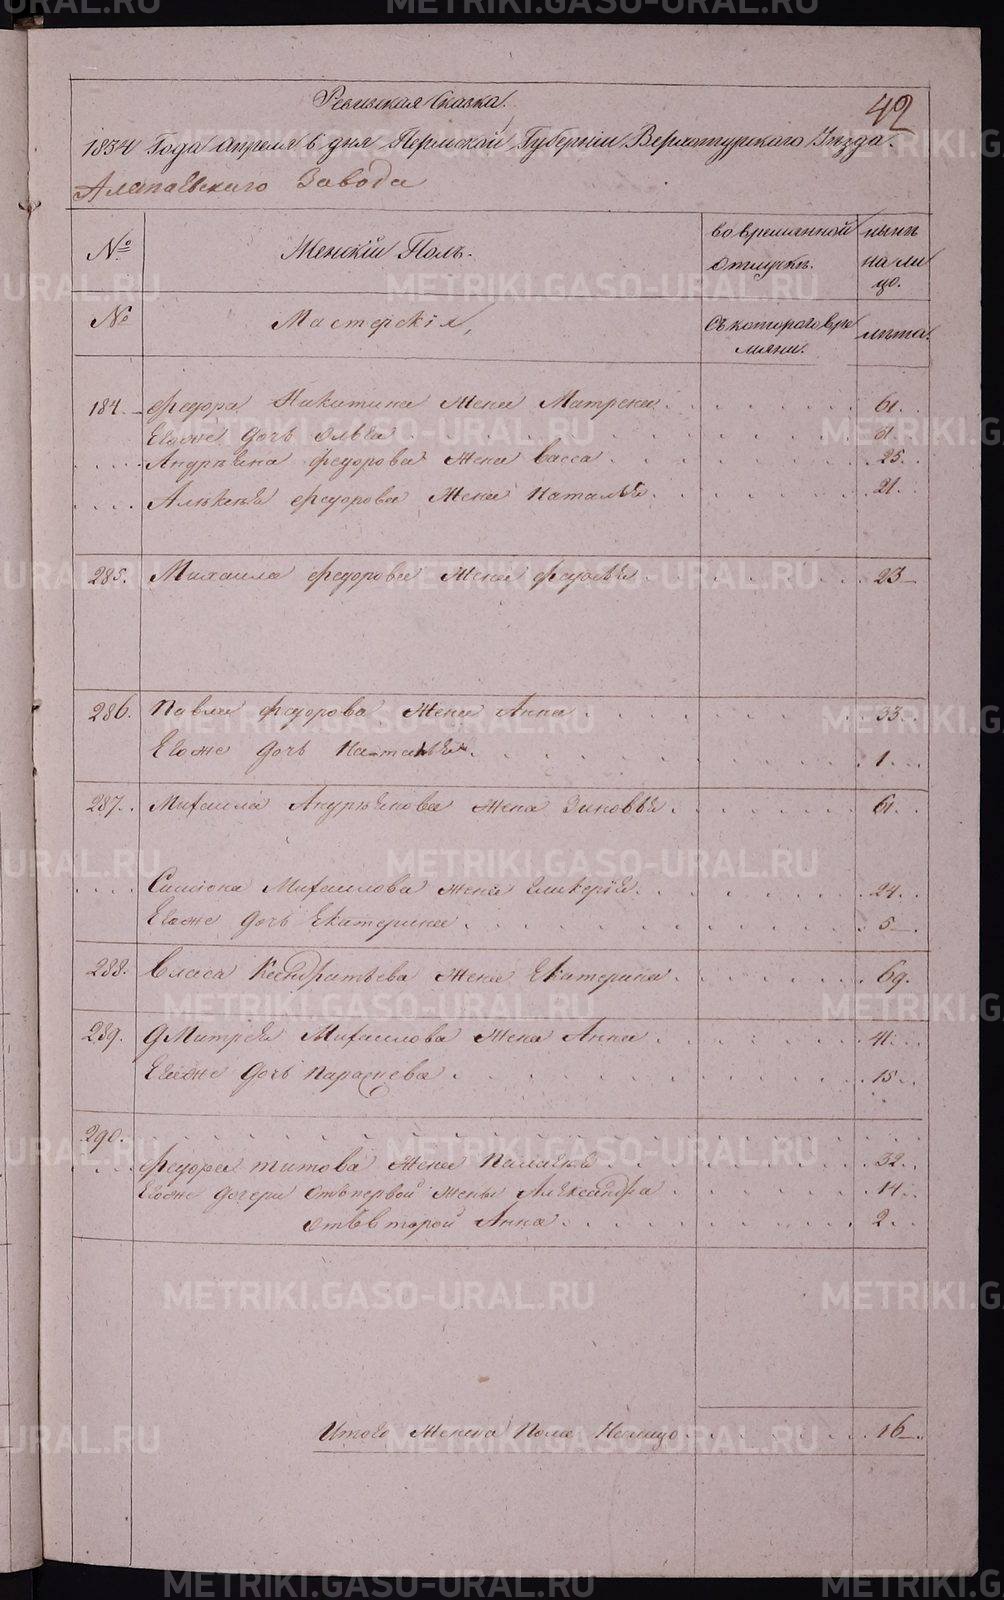 42
Ревизская Сказка.
1834 Года Апреля 6 дня Пермской Губернии Верхотурского Уезда.
Алапаевскаго Завода
№ Женскій Полъ. во временной отлучкѣ. нынѣ на лицо.
№ Мастерскія, Съ котораго времяни. лѣта.
184. Федора Никитина Жена Матрена 61.
Егоже Дочь
Андрѣяна Федорова Жена Васса 25.
Алѣксѣя Федорова Жена Наталья 21.
285. Михаила Федорова Жена 23
286. Павла Федорова Жена Анна 33.
Егоже Дочь Наталья 1.
287. Михаила Андрѣянова Жена Зиновья 61.
Самсона Михаилова жена Гликерія 24.
Егоже Дочь Екатерина 5
288. Власа Кондратьева Жена Екатерина 69.
289. Дмитрея Михаилова Жена Анна 41.
Егоже Дочь Парасковья 15.
290.
Федора Титова Жена Палагѣя 32.
Егоже Дочери Отъ первой жены Александра 14.
отъ второй Анна 2.
Итого Женска Пола Налицо 16.
METRIKI.GASO-URAL.RU